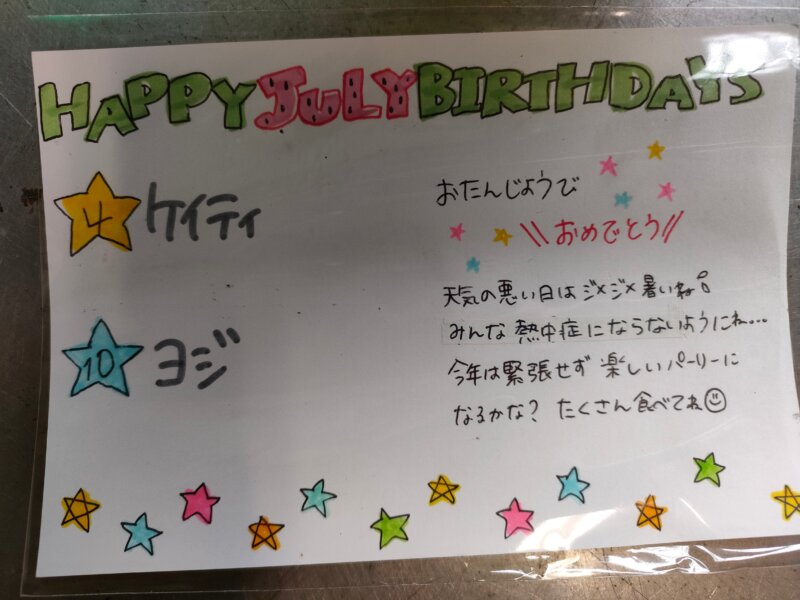 HAPPY JULY BIRTHDAYS
4 ケイティ
10 ヨジ
おたんじょうび
\\ おめでとう //
天気の悪い日はジメジメ暑いね
みんな熱中症にならないようにね...
今年は緊張せず楽しいパーリーに
なるかな? たくさん食べてね